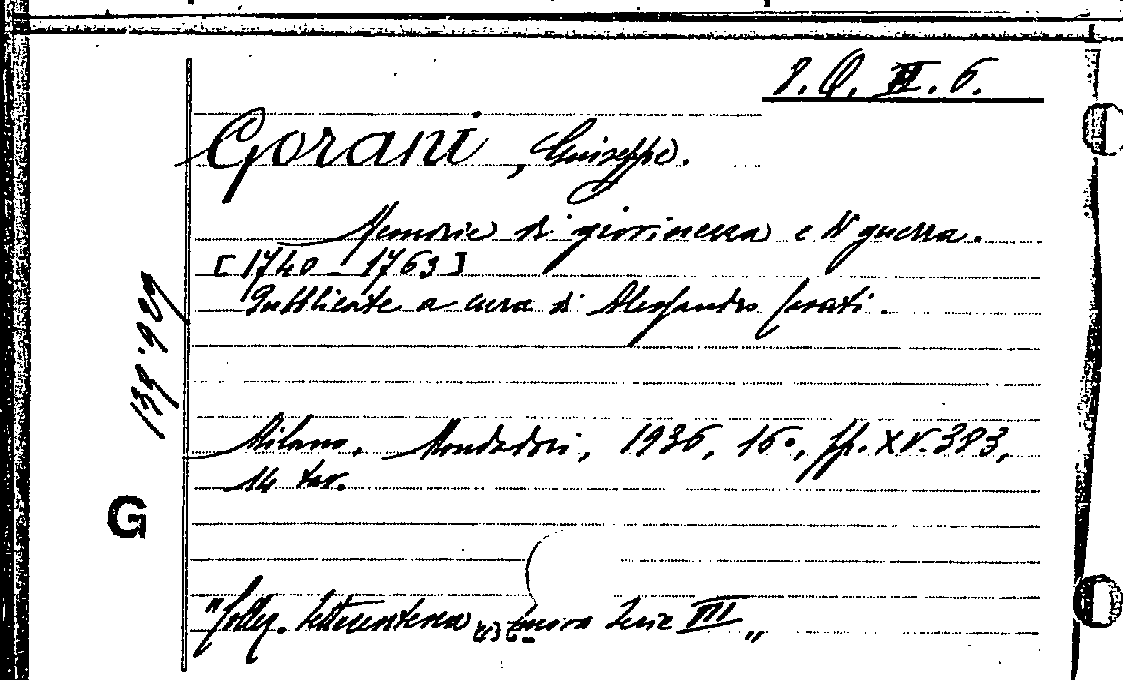 Q. II. 6.
Gorani, Giuseppe.
Memorie di giovinezza e di guerra.
[1740-1763]
Pubblicate a cura di Alessandro
Milano, Mondadori, 1936, 16°, pp. XV. 383,
14 tav.
G
"Collez. Settecentesca nuova Serie III"